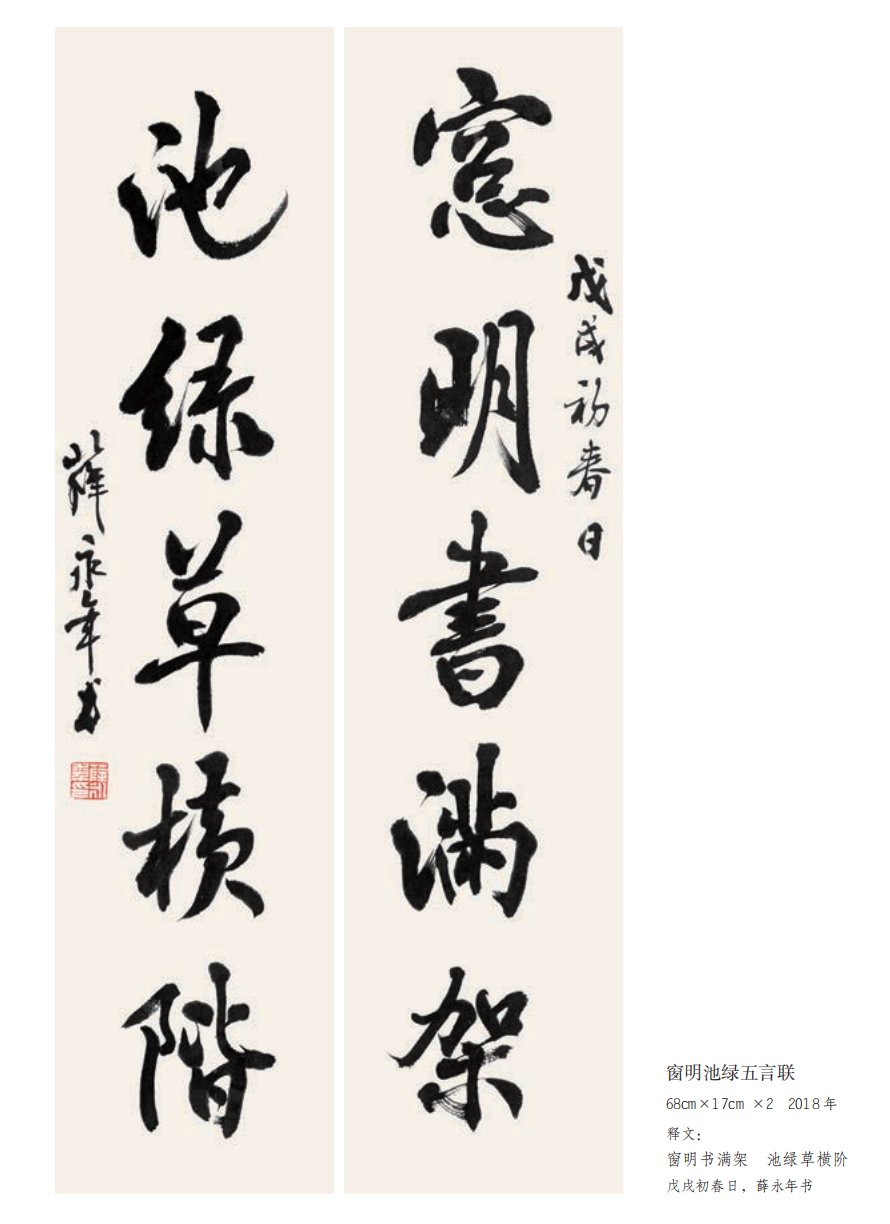 戊戌初春日
窓明書滿架
池緑草橫階
薛永年书
窗明池绿五言联
68cm×17cm ×2 2018年
释文：
窗明书满架 池绿草横阶
戊戌初春日，薛永年书